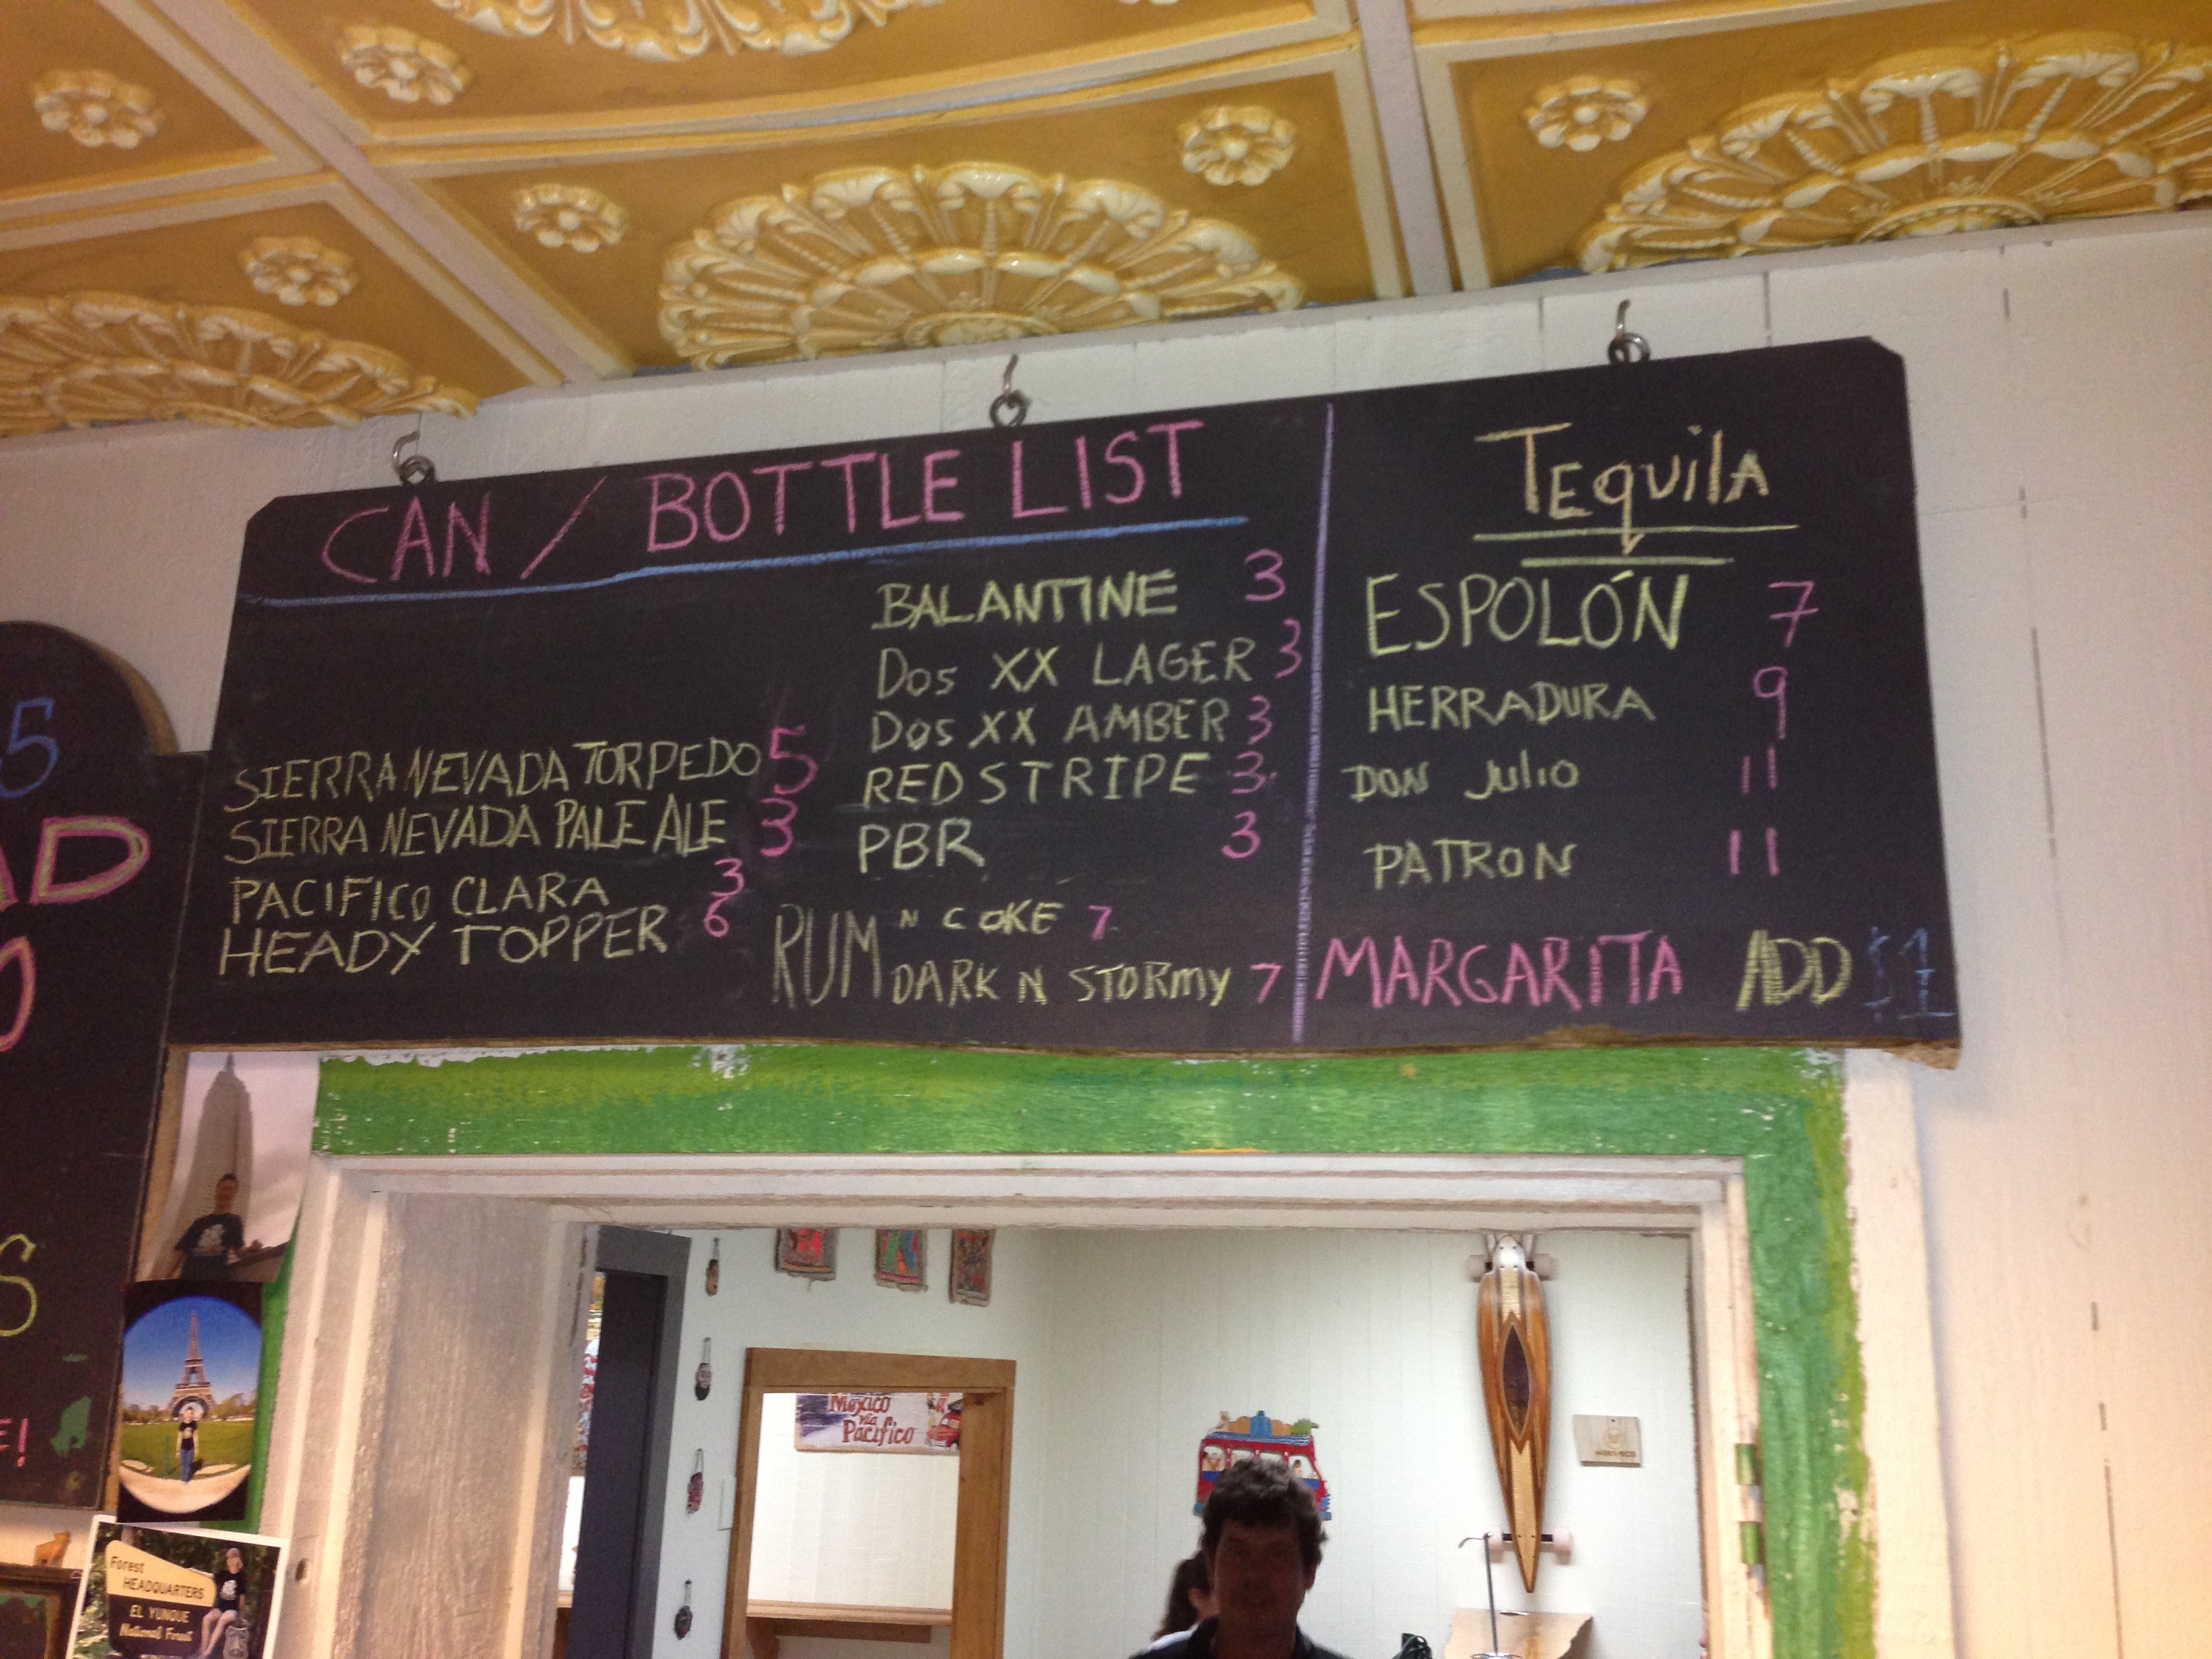 CAN / BOTTLE LIST
SIERRA NEVADA TORPEDO 5
SIERRA NEVADA PALE ALE 3
PACIFICO CLARA 3
HEADY TOPPER 6
BALANTINE 3
Dos XX LAGER 3
Dos XX AMBER 3
RED STRIPE 3
PBR 3
RUM N COKE 7
DARK N STORMY 7
TEquilA
ESPOLÓN 7
HERRADURA 9
DON Julio 11
PATRON 11
MARGARITA ADD $1
5
AD
S
E!
Mexico
via
Pacifico
Forest
HEADQUARTERS
EL YUNQUE
National Forest